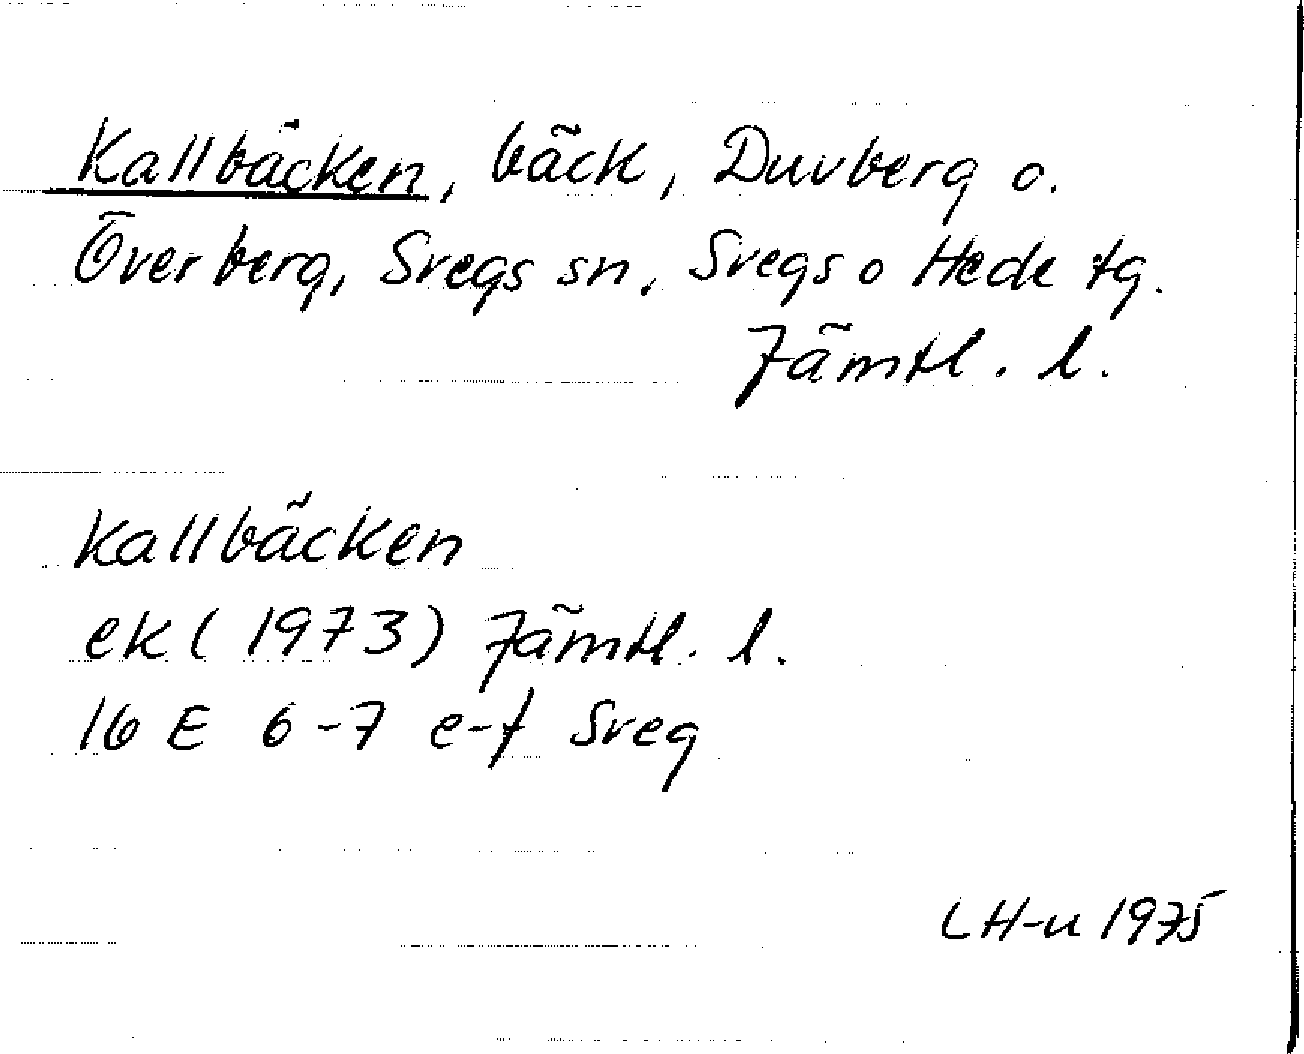 Kallbäcken, bäck, Duvberg o.
Överberg, Svegs sn, Svegs o Hede tg.
Jämtl. l.
Kallbäcken
ek (1973) Jämtl. l.
16 E 6-7 e-f Sveg
LH-u 1975